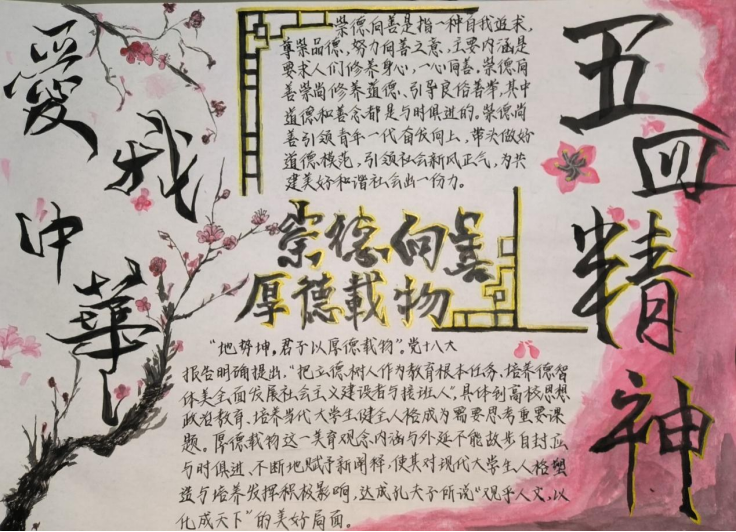 愛我中華
崇德向善是指一种自我追求,
尊崇品德、努力向善之意,主要内涵是
要求人们修养身心,一心向善。崇德向
善崇尚修养道德、引导良俗善举,其中
道德和善念都是与时俱进的。崇德尚
善引领青年一代奋发向上,带头做好
道德模范,引领社会新风正气,为共
建美好和谐社会出一份力。
崇德向善
厚德載物
“地势坤,君子以厚德载物”。党十八大
报告明确提出,“把立德树人作为教育根本任务,培养德智
体美全面发展社会主义建设者与接班人”,具体到高校思想
政治教育、培养当代大学生健全人格成为需要思考重要课
题。厚德载物这一美育观念内涵与外延不能故步自封应
与时俱进、不断地赋予新阐释,使其对现代大学生人格塑
造与培养发挥积极影响,达成孔夫子所说“观乎人文,以
化成天下”的美好局面。
五四精神